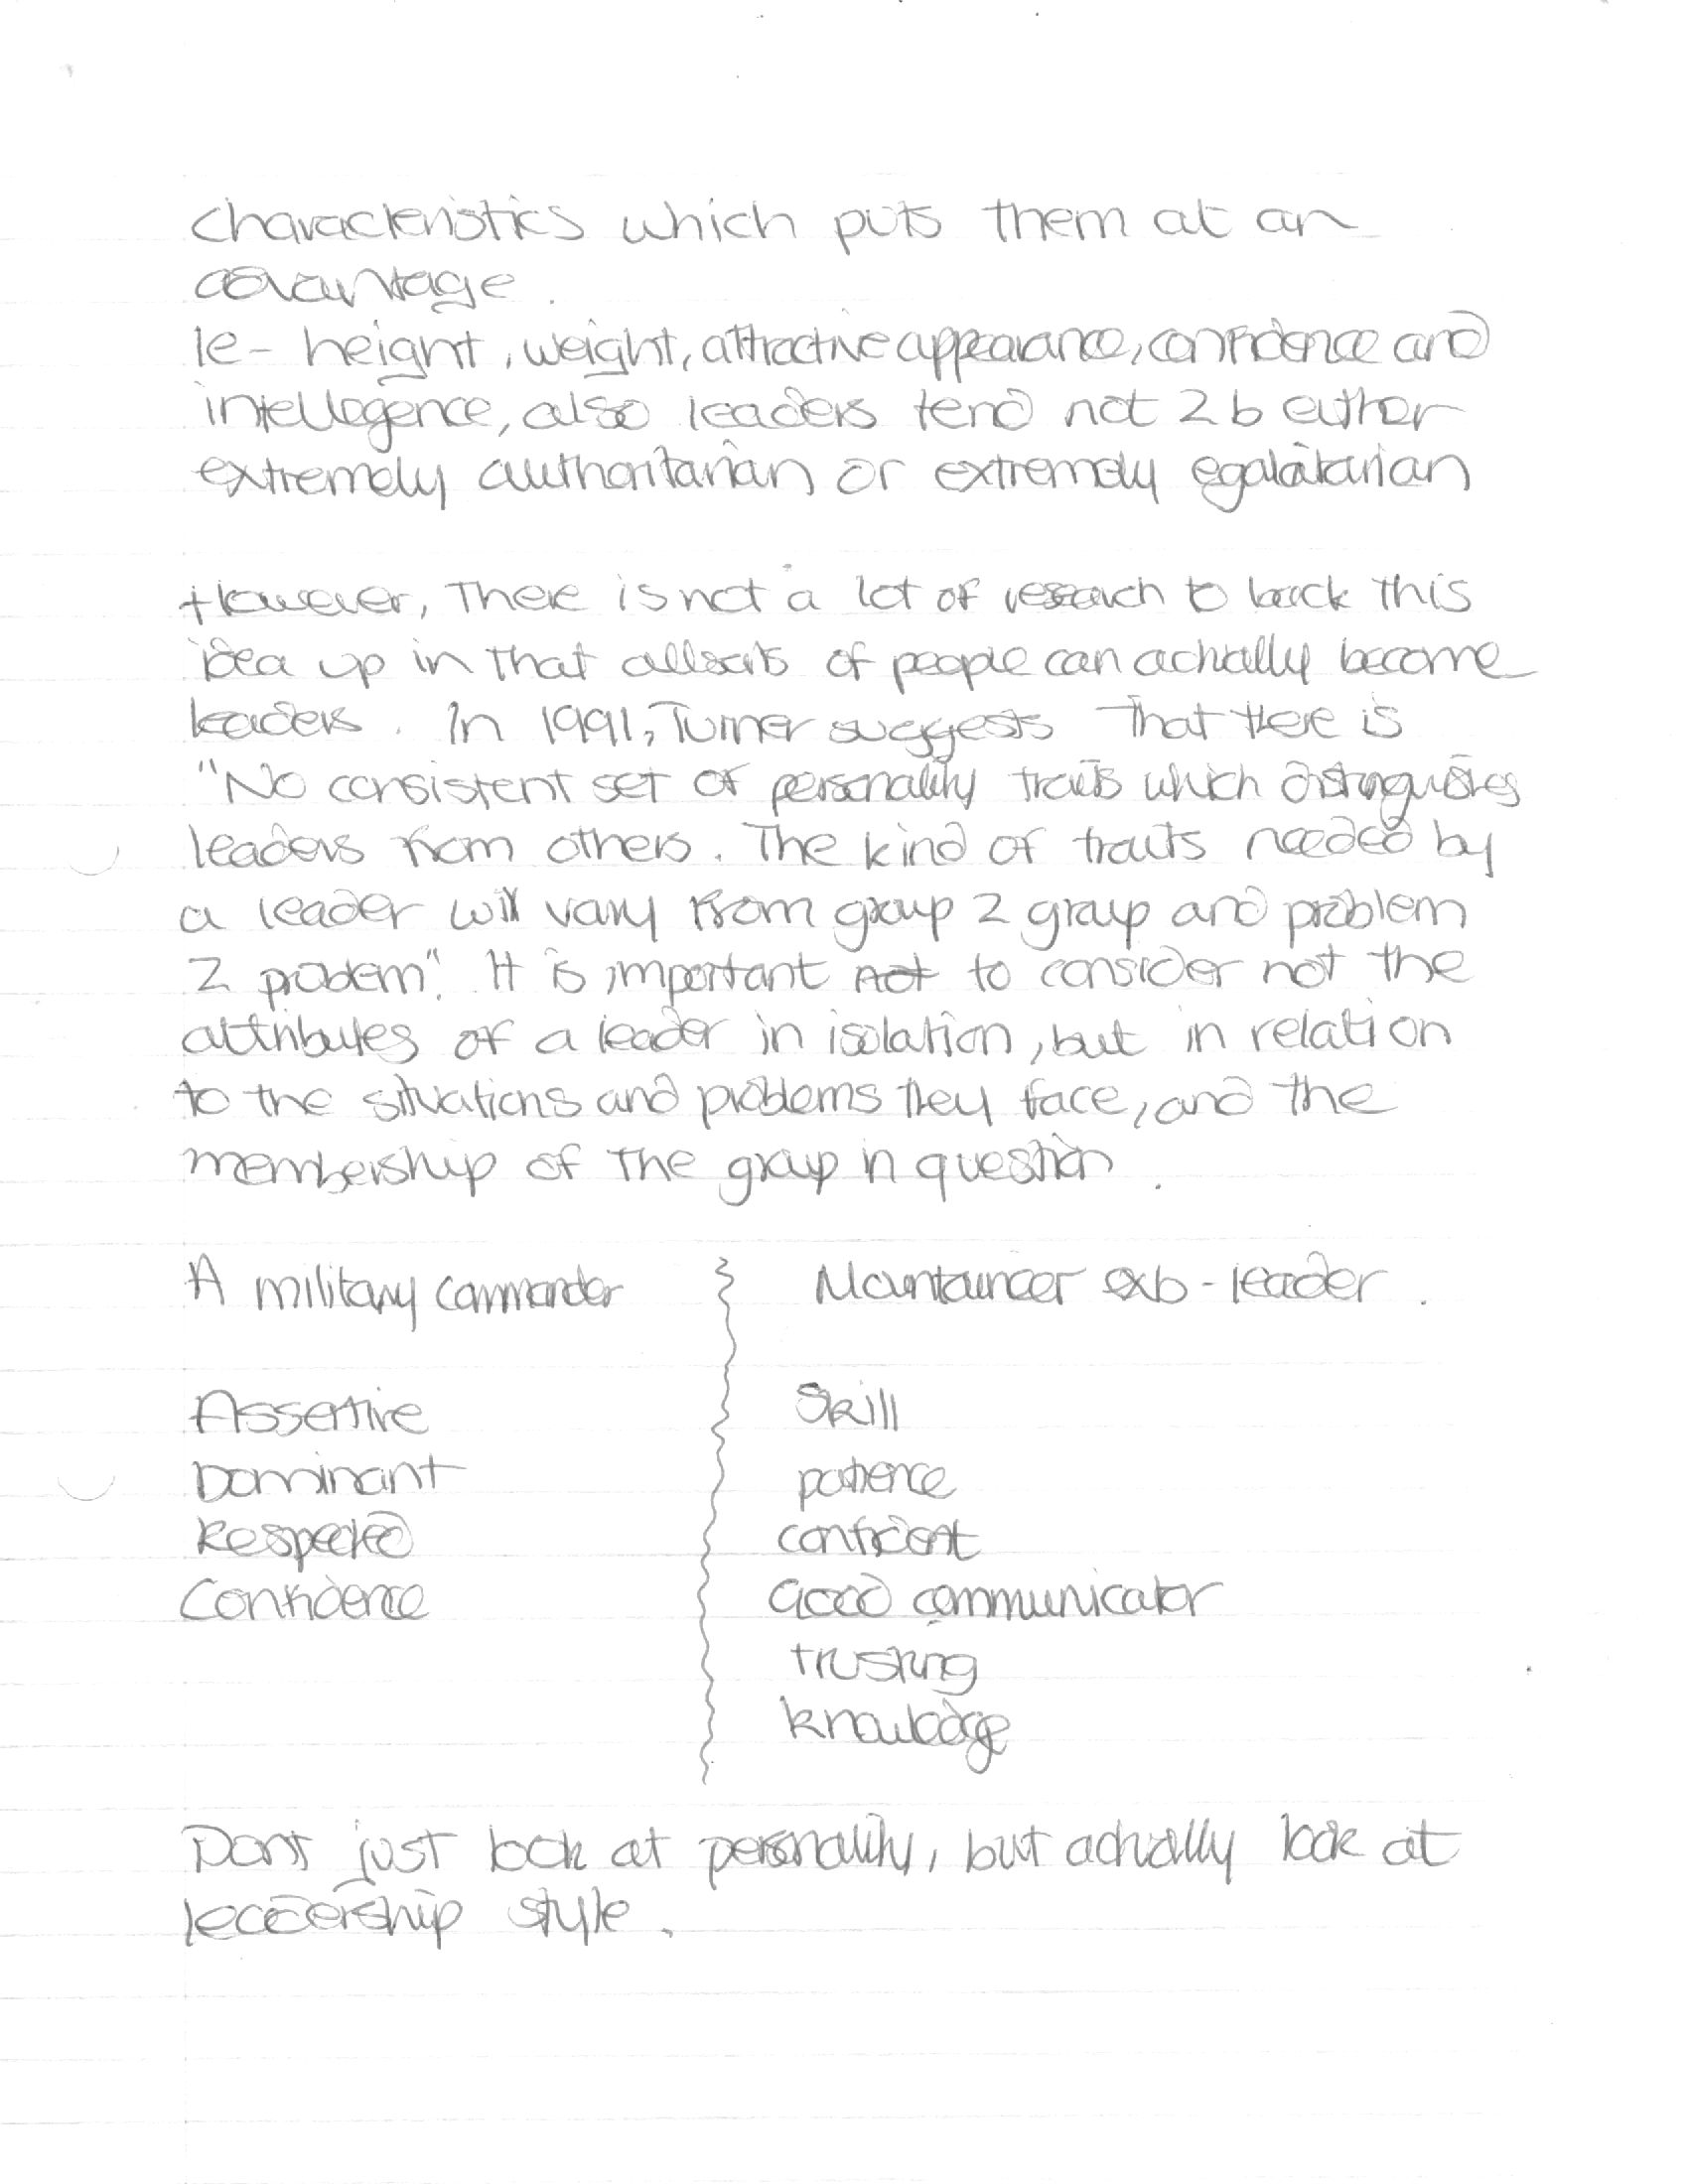 characteristics which puts them at an
advantage.
Ie - height, weight, attractive appearance, confidence and
intellegence, also leaders tend not 2 b either
extremely authoritarian or extremely egalatarian
However, There is not a lot of research to back this
idea up in that allsorts of people can actually become
leaders. In 1991, Turner suggests That there is
"No consistent set of personality traits which distinguishes
leaders from others. The kind of traits needed by
a leader will vary from group 2 group and problem
2 problem". It is important not to consider not the
attributes of a leader in isolation, but in relation
to the situations and problems they face, and the
membership of The group in question.
A military commander
Mountaineer - leader.
Assertive
Skill
Dominant
patience
Respected
confident
Confidence
Good communicator
trusting
knowledge
Dont just look at personality, but actually look at
leadership style.